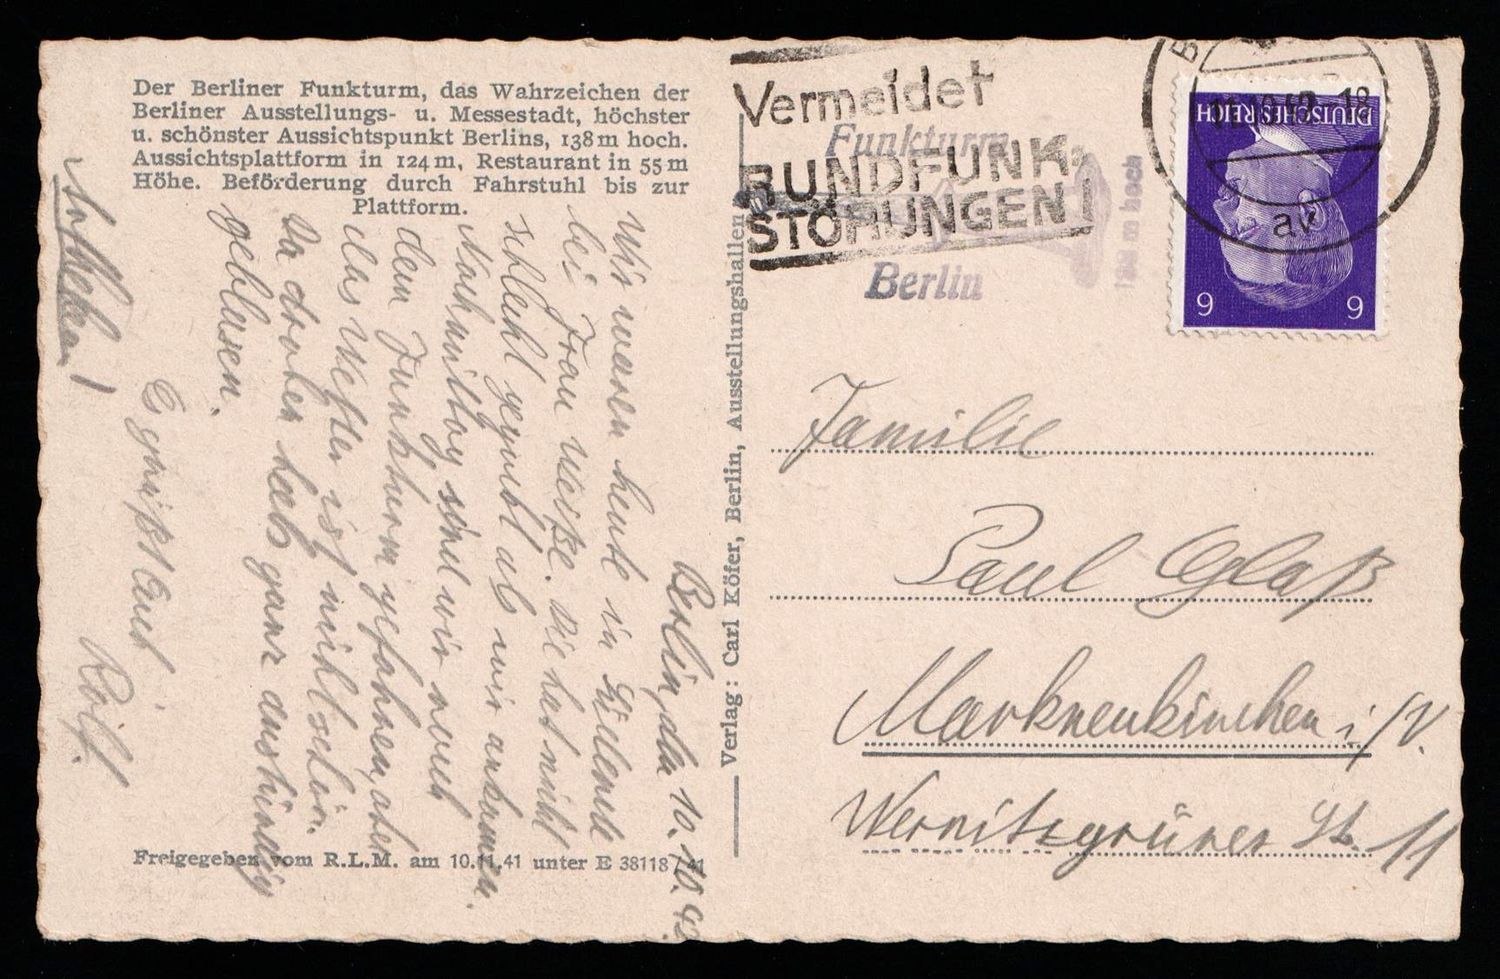 Der Berliner Funkturm, das Wahrzeichen der
Berliner Ausstellungs- u. Messestadt, höchster
u. schönster Aussichtspunkt Berlins, 138 m hoch.
Aussichtsplattform in 124 m, Restaurant in 55 m
Höhe. Beförderung durch Fahrstuhl bis zur
Plattform.
Berlin, den 10.10.42
Wir waren heute in
bei Frau Weise. Sie hat nicht
schlecht geguckt als wir ankamen.
Nachmittag sind wir noch
dem Funkturm gefahren, aber
das Wetter ist nicht schön.
Da droben hats ganz anständig
geblasen.
Es grüßt Euch
Rolf.
Freigegeben vom R.L.M. am 10.11.41 unter E 38118/41
Verlag: Carl Köfer, Berlin, Ausstellungshallen
Vermeidet
RUNDFUNK-
STÖRUNGEN!
Funkturm
Berlin
138 m hoch
av
DEUTSCHES REICH
9 9
Familie
Paul Glaß
Markneukirchen i/V.
Wernitzgrüner St. 11